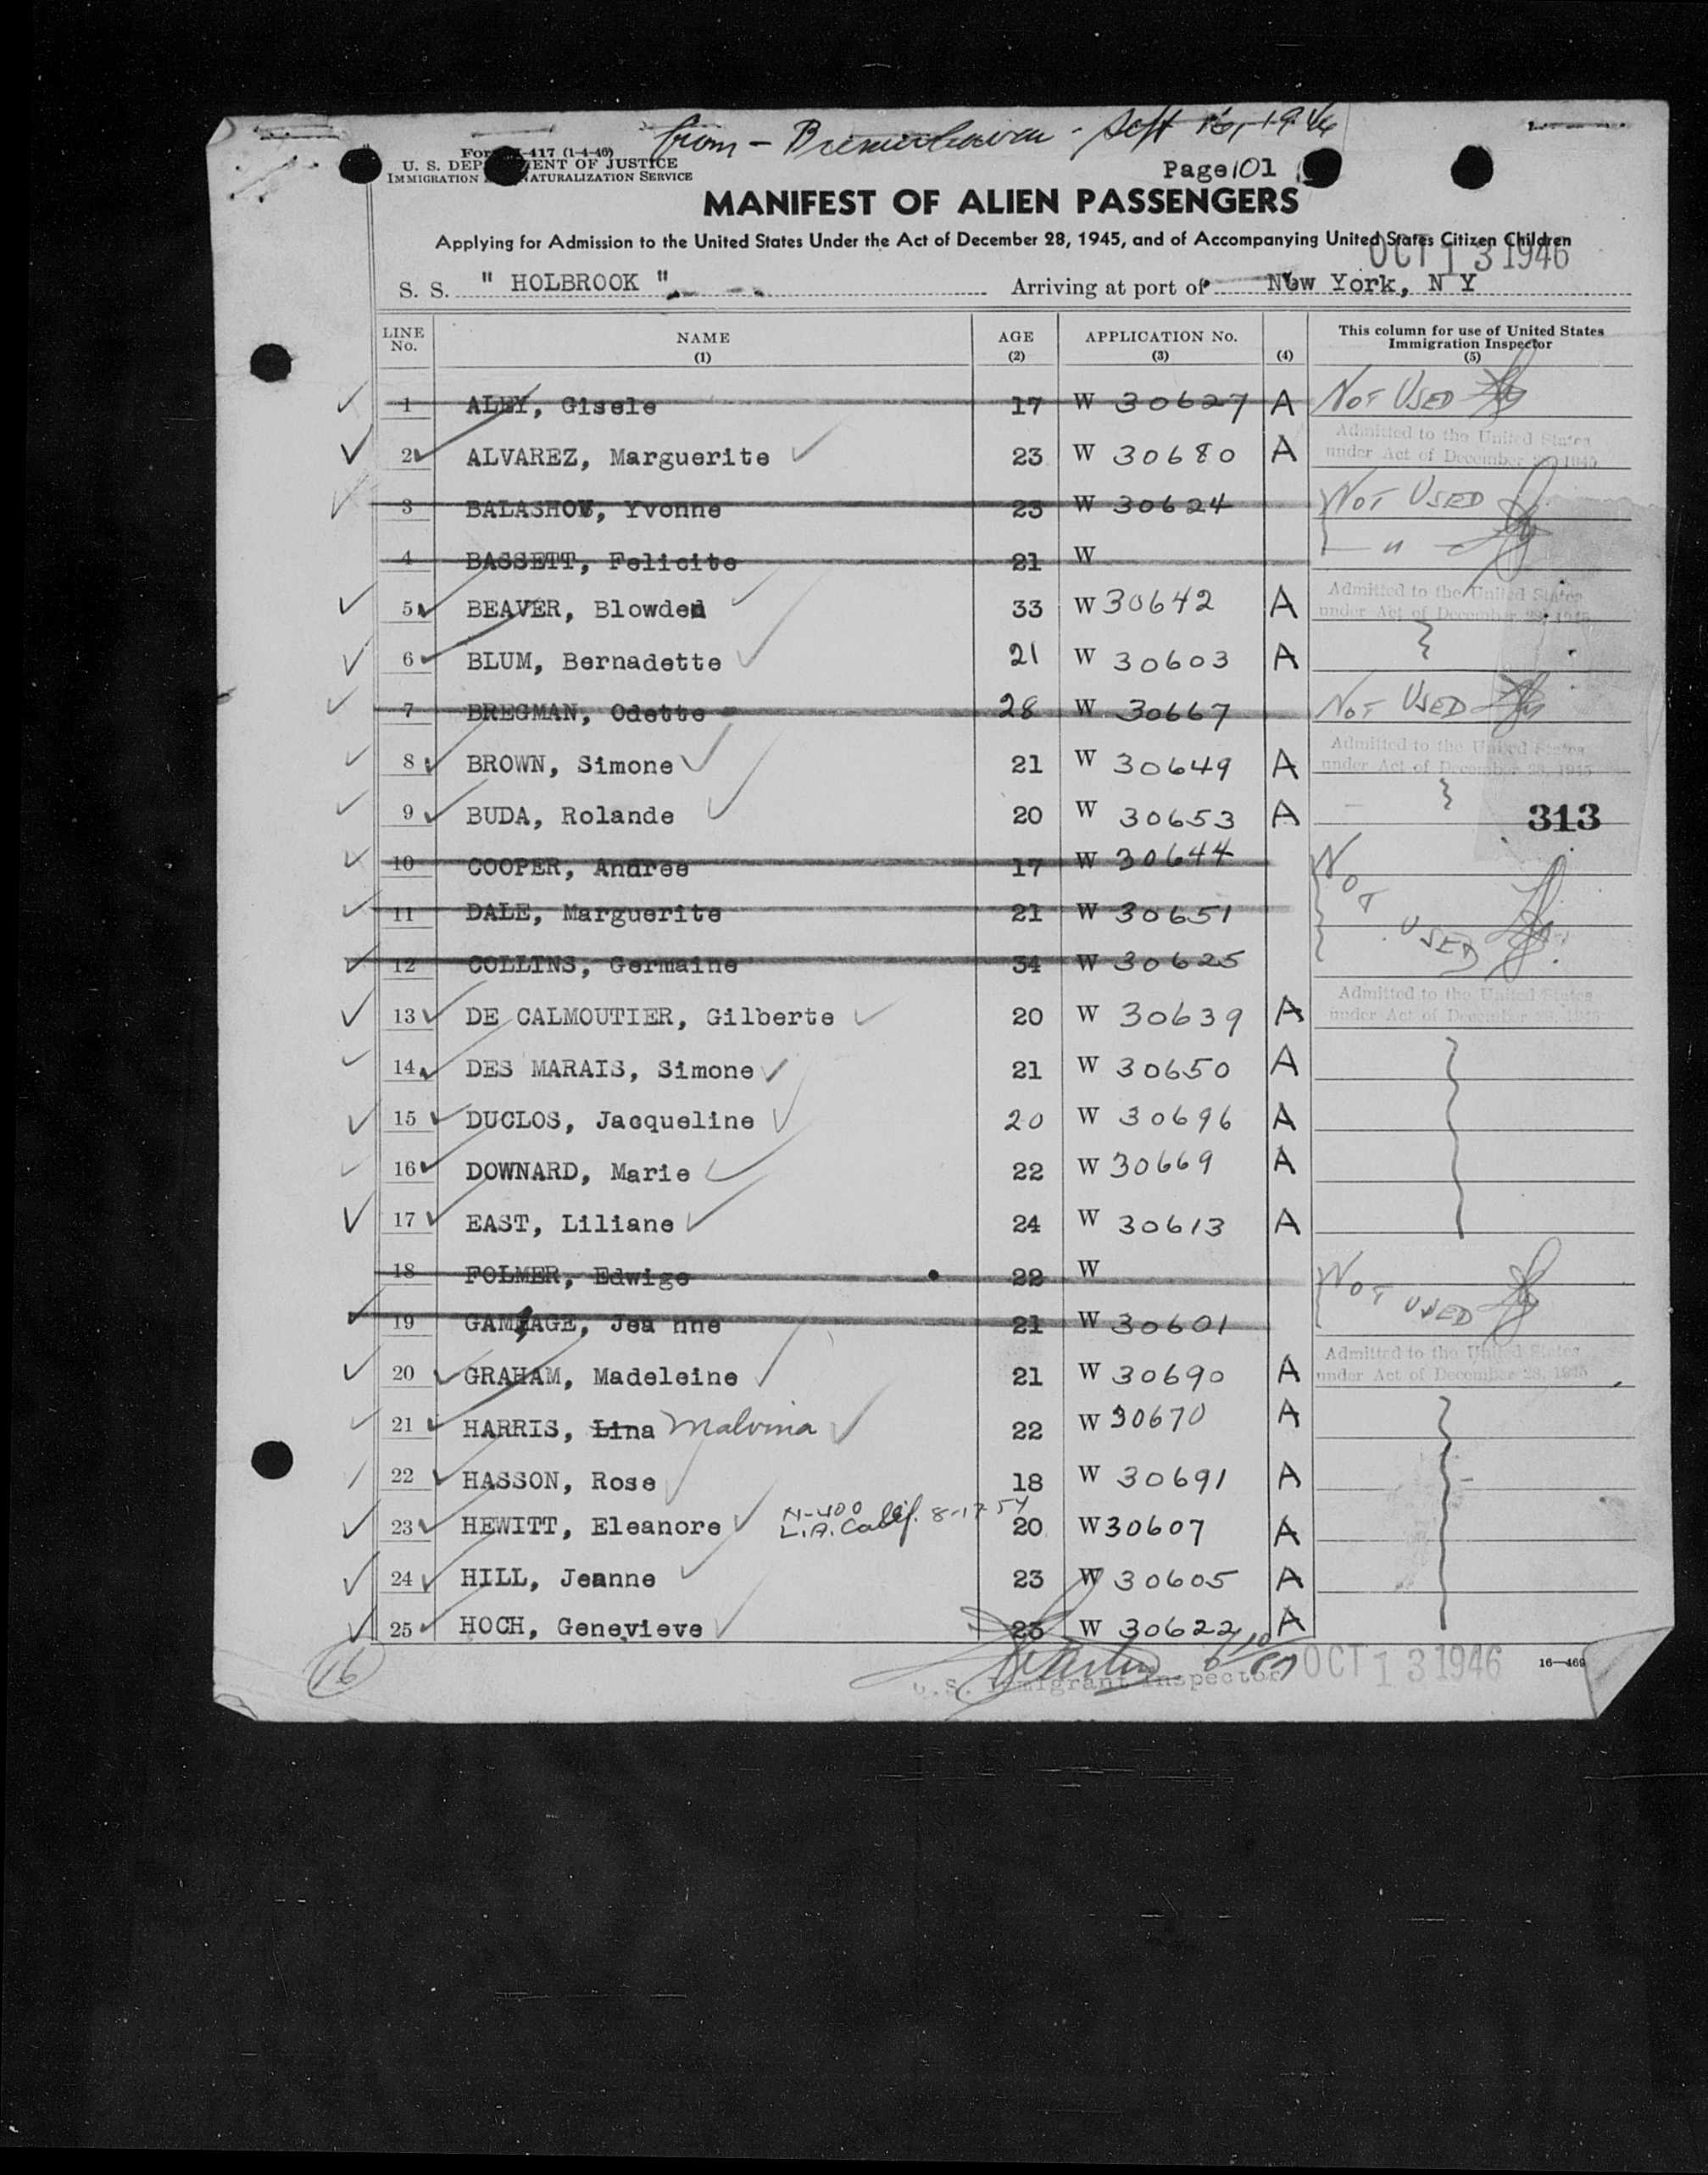 from - Bremerhaven - Sept 1946
Form I-417 (1-4-46)
U. S. DEPARTMENT OF JUSTICE
IMMIGRATION NATURALIZATION SERVICE
Page 101
MANIFEST OF ALIEN PASSENGERS
Applying for Admission to the United States Under the Act of December 28, 1945, and of Accompanying United States Citizen Children
OCT 13 1946
S. S. " HOLBROOK " Arriving at port of New York, N Y
LINE No. NAME (1) AGE (2) APPLICATION No. (3) (4) This column for use of United States Immigration Inspector (5)
1 ALEY, Gisele 17 W 30627 A NOT USED
2 ALVAREZ, Marguerite 23 W 30680 A Admitted to the United States under Act of December 28, 1945
3 BALASHOV, Yvonne 23 W 30624 NOT USED
4 BASSETT, Felicite 21 W "
5 BEAVER, Blowden 33 W 30642 A Admitted to the United States under Act of December 28, 1945
6 BLUM, Bernadette 21 W 30603 A
7 BREGMAN, Odette 28 W 30667 NOT USED
8 BROWN, Simone 21 W 30649 A Admitted to the United States under Act of December 28, 1945
9 BUDA, Rolande 20 W 30653 A 313
10 COOPER, Andree 17 W 30644 NOT USED
11 DALE, Marguerite 21 W 30651
12 COLLINS, Germaine 34 W 30625
13 DE CALMOUTIER, Gilberte 20 W 30639 A Admitted to the United States under Act of December 28, 1945
14 DES MARAIS, Simone 21 W 30650 A
15 DUCLOS, Jacqueline 20 W 30696 A
16 DOWNARD, Marie 22 W 30669 A
17 EAST, Liliane 24 W 30613 A
18 FOLMER, Edwige 22 W NOT USED
19 GAMMAGE, Jea nne 21 W 30601
20 GRAHAM, Madeleine 21 W 30690 A Admitted to the United States under Act of December 28, 1945
21 HARRIS, Lina Malvina 22 W 30670 A
22 HASSON, Rose 18 W 30691 A
23 HEWITT, Eleanore N-400 L.A. Calif. 8-17-54 20 W 30607 A
24 HILL, Jeanne 23 W 30605 A
25 HOCH, Genevieve 23 W 30622 A
16
U.S. Immigrant Inspector OCT 13 1946
16—469